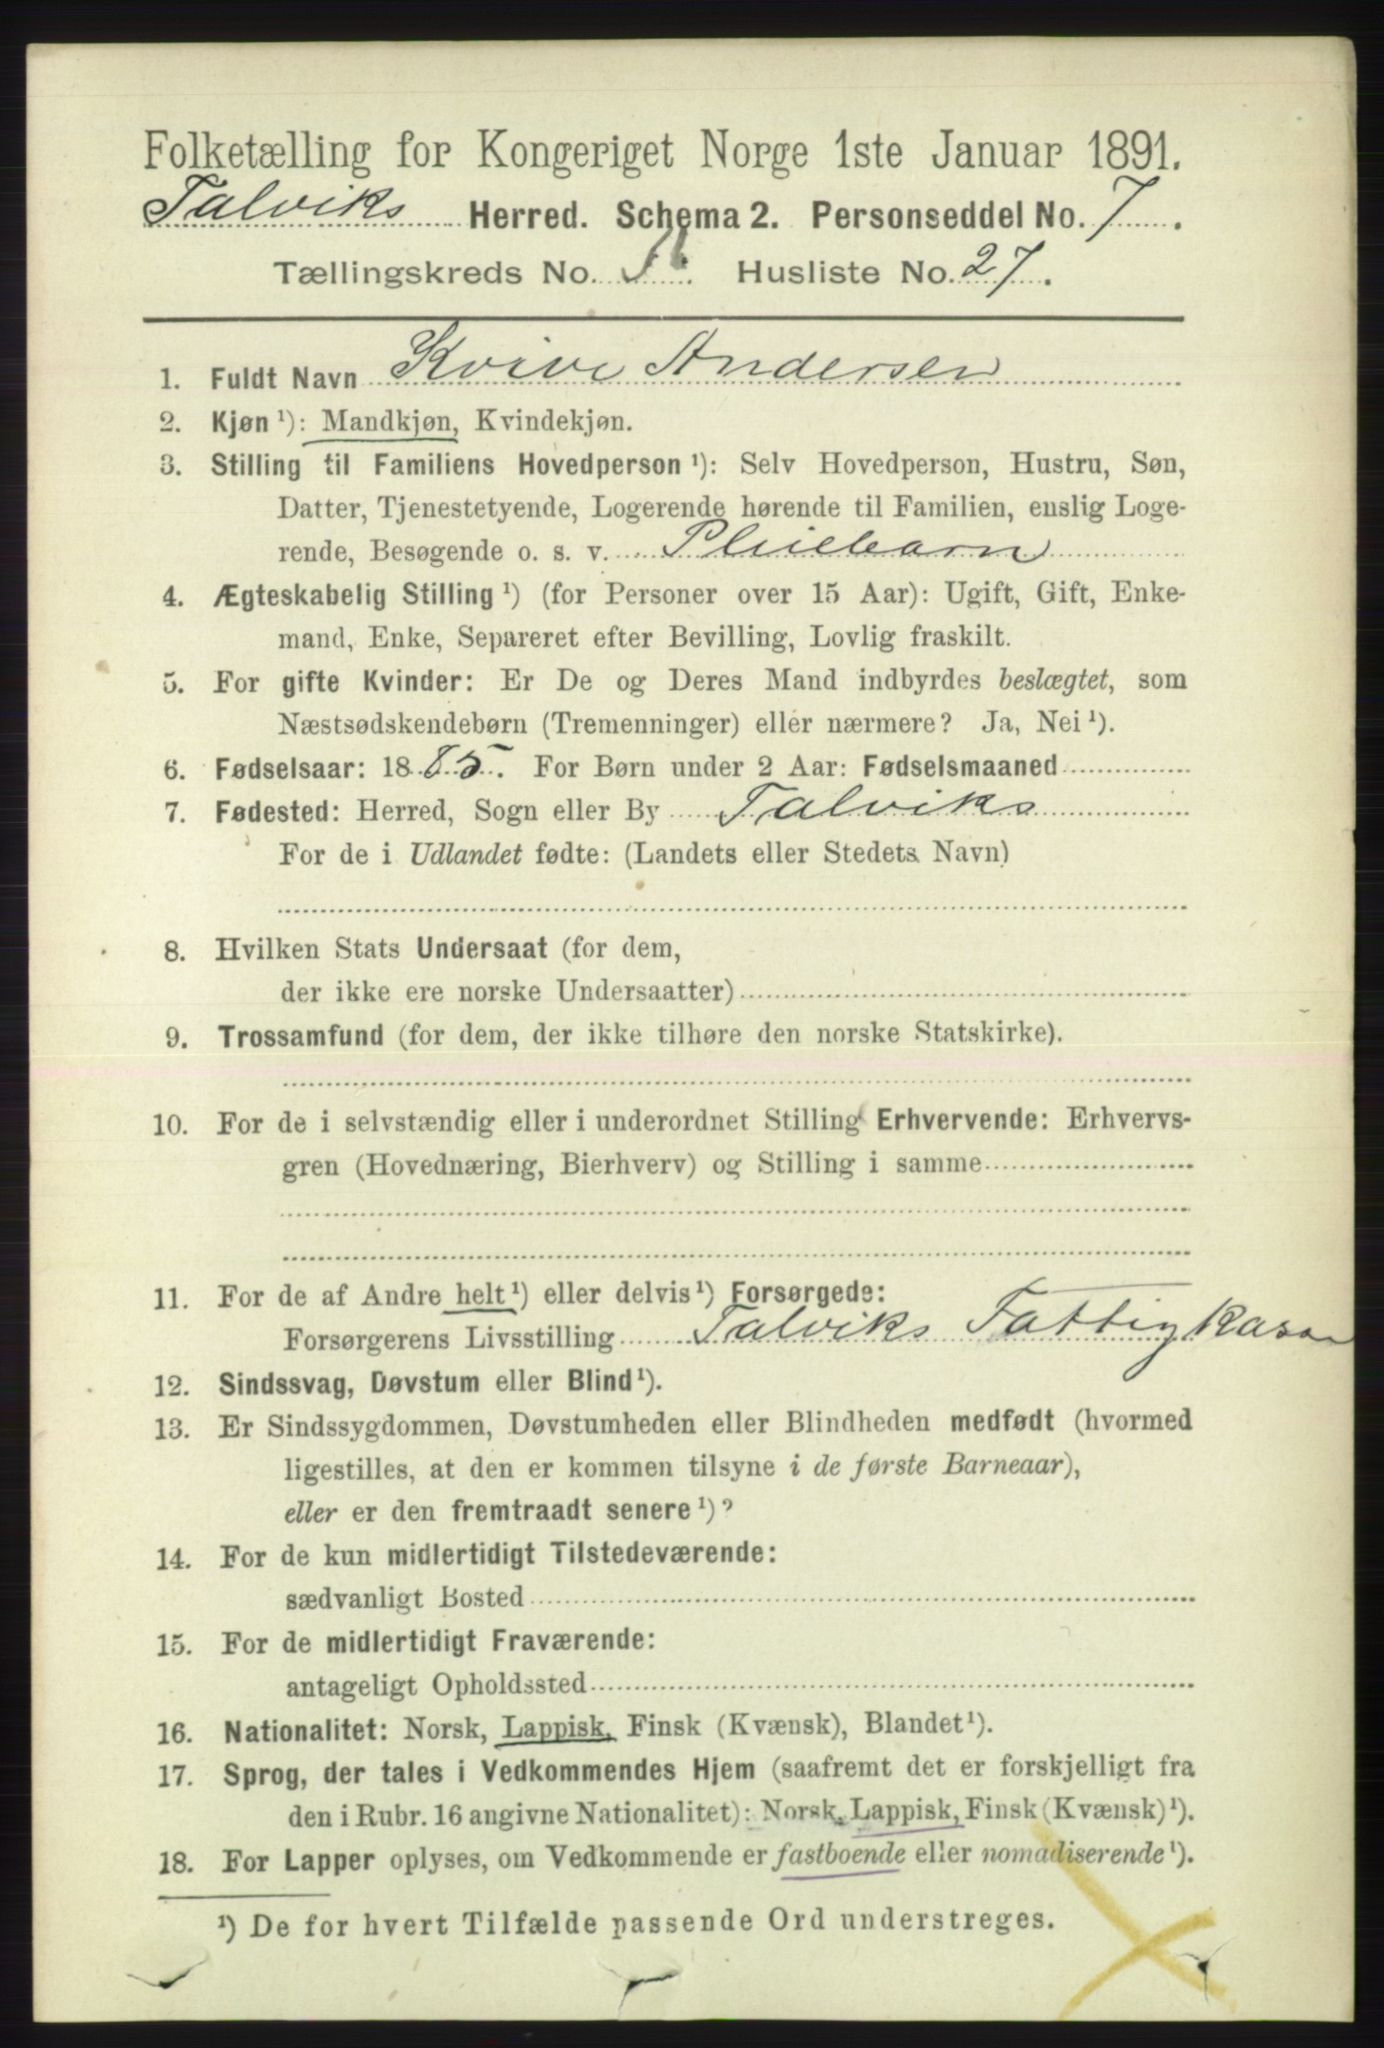 Folketælling for Kongeriget Norge 1ste Januar 1891.
Talviks Herred. Schema 2. Personseddel No. 7.
Tællingskreds No. Husliste No. 27.
1. Fuldt Navn Andersen
2. Kjøn ¹): Mandkjøn, Kvindekjøn.
3. Stilling til Familiens Hovedperson ¹): Selv Hovedperson, Hustru, Søn,
Datter, Tjenestetyende, Logerende hørende til Familien, enslig Loge-
rende, Besøgende o. s. v. Pleiebarn
4. Ægteskabelig Stilling ¹) (for Personer over 15 Aar): Ugift, Gift, Enke-
mand, Enke, Separeret efter Bevilling, Lovlig fraskilt.
5. For gifte Kvinder: Er De og Deres Mand indbyrdes beslægtet, som
Næstsødskendebørn (Tremenninger) eller nærmere? Ja, Nei ¹).
6. Fødselsaar: 1885. For Børn under 2 Aar: Fødselsmaaned
7. Fødested: Herred, Sogn eller By Talviks
For de i Udlandet fødte: (Landets eller Stedets Navn)
8. Hvilken Stats Undersaat (for dem,
der ikke ere norske Undersaatter)
9. Trossamfund (for dem, der ikke tilhøre den norske Statskirke).
10. For de i selvstændig eller i underordnet Stilling Erhvervende: Erhvervs-
gren (Hovednæring, Bierhverv) og Stilling i samme
11. For de af Andre helt ¹) eller delvis ¹) Forsørgede:
Forsørgerens Livsstilling Talviks Fattigkasse
12. Sindssvag, Døvstum eller Blind ¹).
13. Er Sindssygdommen, Døvstumheden eller Blindheden medfødt (hvormed
ligestilles, at den er kommen tilsyne i de første Barneaar),
eller er den fremtraadt senere ¹)?
14. For de kun midlertidigt Tilstedeværende:
sædvanligt Bosted
15. For de midlertidigt Fraværende:
antageligt Opholdssted
16. Nationalitet: Norsk, Lappisk, Finsk (Kvænsk), Blandet ¹).
17. Sprog, der tales i Vedkommendes Hjem (saafremt det er forskjelligt fra
den i Rubr. 16 angivne Nationalitet): Norsk, Lappisk, Finsk (Kvænsk) ¹).
18. For Lapper oplyses, om Vedkommende er fastboende eller nomadiserende ¹).
¹) De for hvert Tilfælde passende Ord understreges.